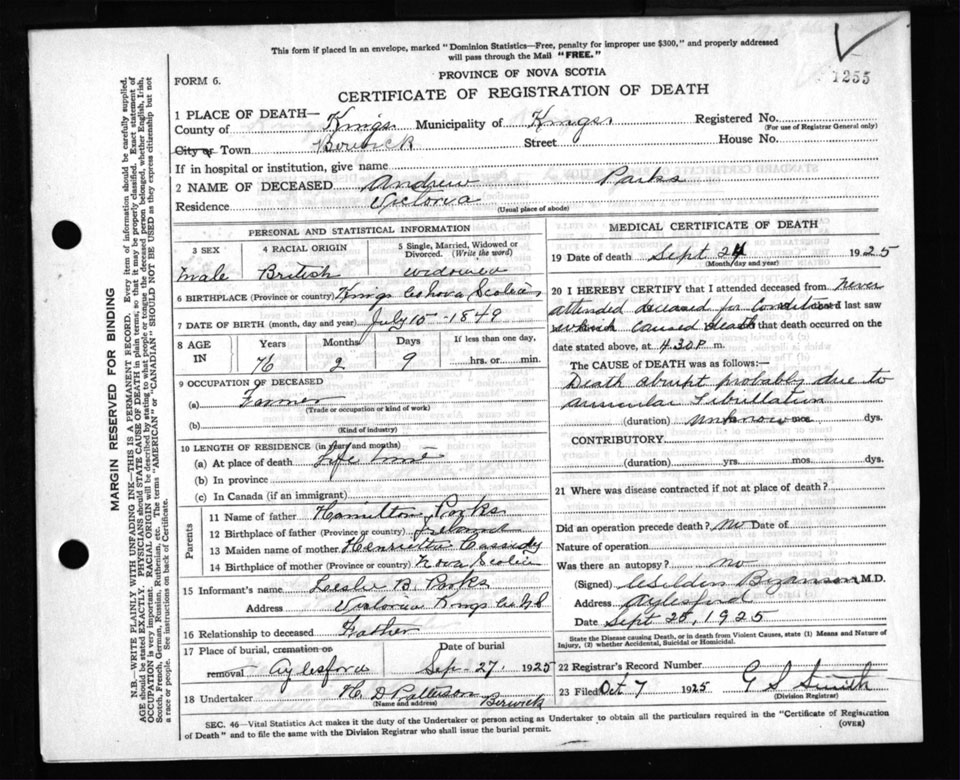 This form if placed in an envelope, marked "Dominion Statistics—Free, penalty for improper use $300," and properly addressed
will pass through the Mail "FREE."
PROVINCE OF NOVA SCOTIA
FORM 6.
1255
CERTIFICATE OF REGISTRATION OF DEATH
1 PLACE OF DEATH—
County of Kings Municipality of Kings Registered No.
(For use of Registrar General only)
City or Town Berwick Street House No.
If in hospital or institution, give name
2 NAME OF DECEASED Andrew Parks
Residence Victoria
(Usual place of abode)
PERSONAL AND STATISTICAL INFORMATION
3 SEX 4 RACIAL ORIGIN 5 Single, Married, Widowed or
Divorced. (Write the word)
Male British widowed
6 BIRTHPLACE (Province or country) Kings Co Nova Scotia
7 DATE OF BIRTH (month, day and year) July 15 - 1849
8 AGE IN Years Months Days If less than one day,
76 2 9 hrs. or min.
9 OCCUPATION OF DECEASED
(a) Farmer
(Trade or occupation or kind of work)
(b)
(Kind of industry)
10 LENGTH OF RESIDENCE (in years and months)
(a) At place of death Life time
(b) In province
(c) In Canada (if an immigrant)
Parents
11 Name of father Hamilton Parks
12 Birthplace of father (Province or country) Ireland
13 Maiden name of mother Henrietta Cassidy
14 Birthplace of mother (Province or country) Nova Scotia
15 Informant's name Leslie B. Parks
Address Victoria Kings Co N S
16 Relationship to deceased Father
17 Place of burial, cremation or Date of burial
removal Aylesford Sep - 27, 1925
18 Undertaker H. D Patterson Berwick
(Name and address)
MEDICAL CERTIFICATE OF DEATH
19 Date of death Sept 24 1925
(Month, day and year)
20 I HEREBY CERTIFY that I attended deceased from Never
attended deceased for condition last saw
which caused death that death occurred on
date stated above, at 4.30 P m.
The CAUSE of DEATH was as follows:—
Death abrupt probably due to
auricular fibrillation
(duration) Unknown mos. dys.
CONTRIBUTORY
(duration) yrs. mos. dys.
21 Where was disease contracted if not at place of death?
Did an operation precede death? No Date of
Nature of operation
Was there an autopsy? no
(Signed) Bezanson M.D.
Address Aylesford
Date Sept 25, 1925
State the Disease causing Death, or in death from Violent Causes, state (1) Means and Nature of
Injury, (2) whether Accidental, Suicidal or Homicidal.
22 Registrar's Record Number
23 Filed Oct 7 1925 G S Smith
(Division Registrar)
SEC. 46—Vital Statistics Act makes it the duty of the Undertaker or person acting as Undertaker to obtain all the particulars required in the "Certificate of Registration
of Death" and to file the same with the Division Registrar who shall issue the burial permit.
(OVER)
MARGIN RESERVED FOR BINDING
N.B.—WRITE PLAINLY WITH UNFADING INK—THIS IS A PERMANENT RECORD. Every item of information should be carefully supplied.
AGE should be stated EXACTLY. PHYSICIANS should STATE CAUSE OF DEATH in plain terms, so that it may be properly classified. Exact statement of
OCCUPATION is very important. RACIAL ORIGIN will be described by stating to what people or tongue the deceased person belonged, whether English, Irish,
Scotch, French, German, Russian, Ruthenian, etc. The terms "AMERICAN" or "CANADIAN" SHOULD NOT BE USED as they express citizenship but not
a race or people. See instructions on back of Certificate.